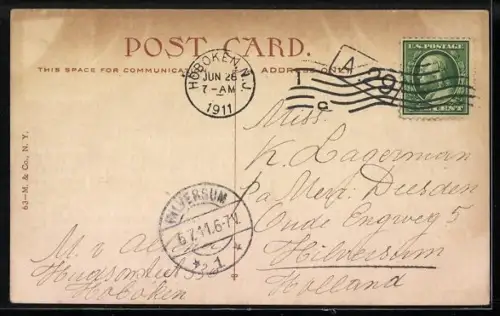 POST CARD.
THIS SPACE FOR COMMUNICATION ADDRESS ONLY
HOBOKEN, N.J.
JUN 26
7-AM
1911
1
C
A
29
U.S. POSTAGE
CENT
63-M. & Co., N. Y.
HILVERSUM
6.7.11.6-7V.
* 1 *
Miss.
K. Lagerman
Oude Engweg 5
Hilversum
Holland
M v
Hudsonstreet
Hoboken